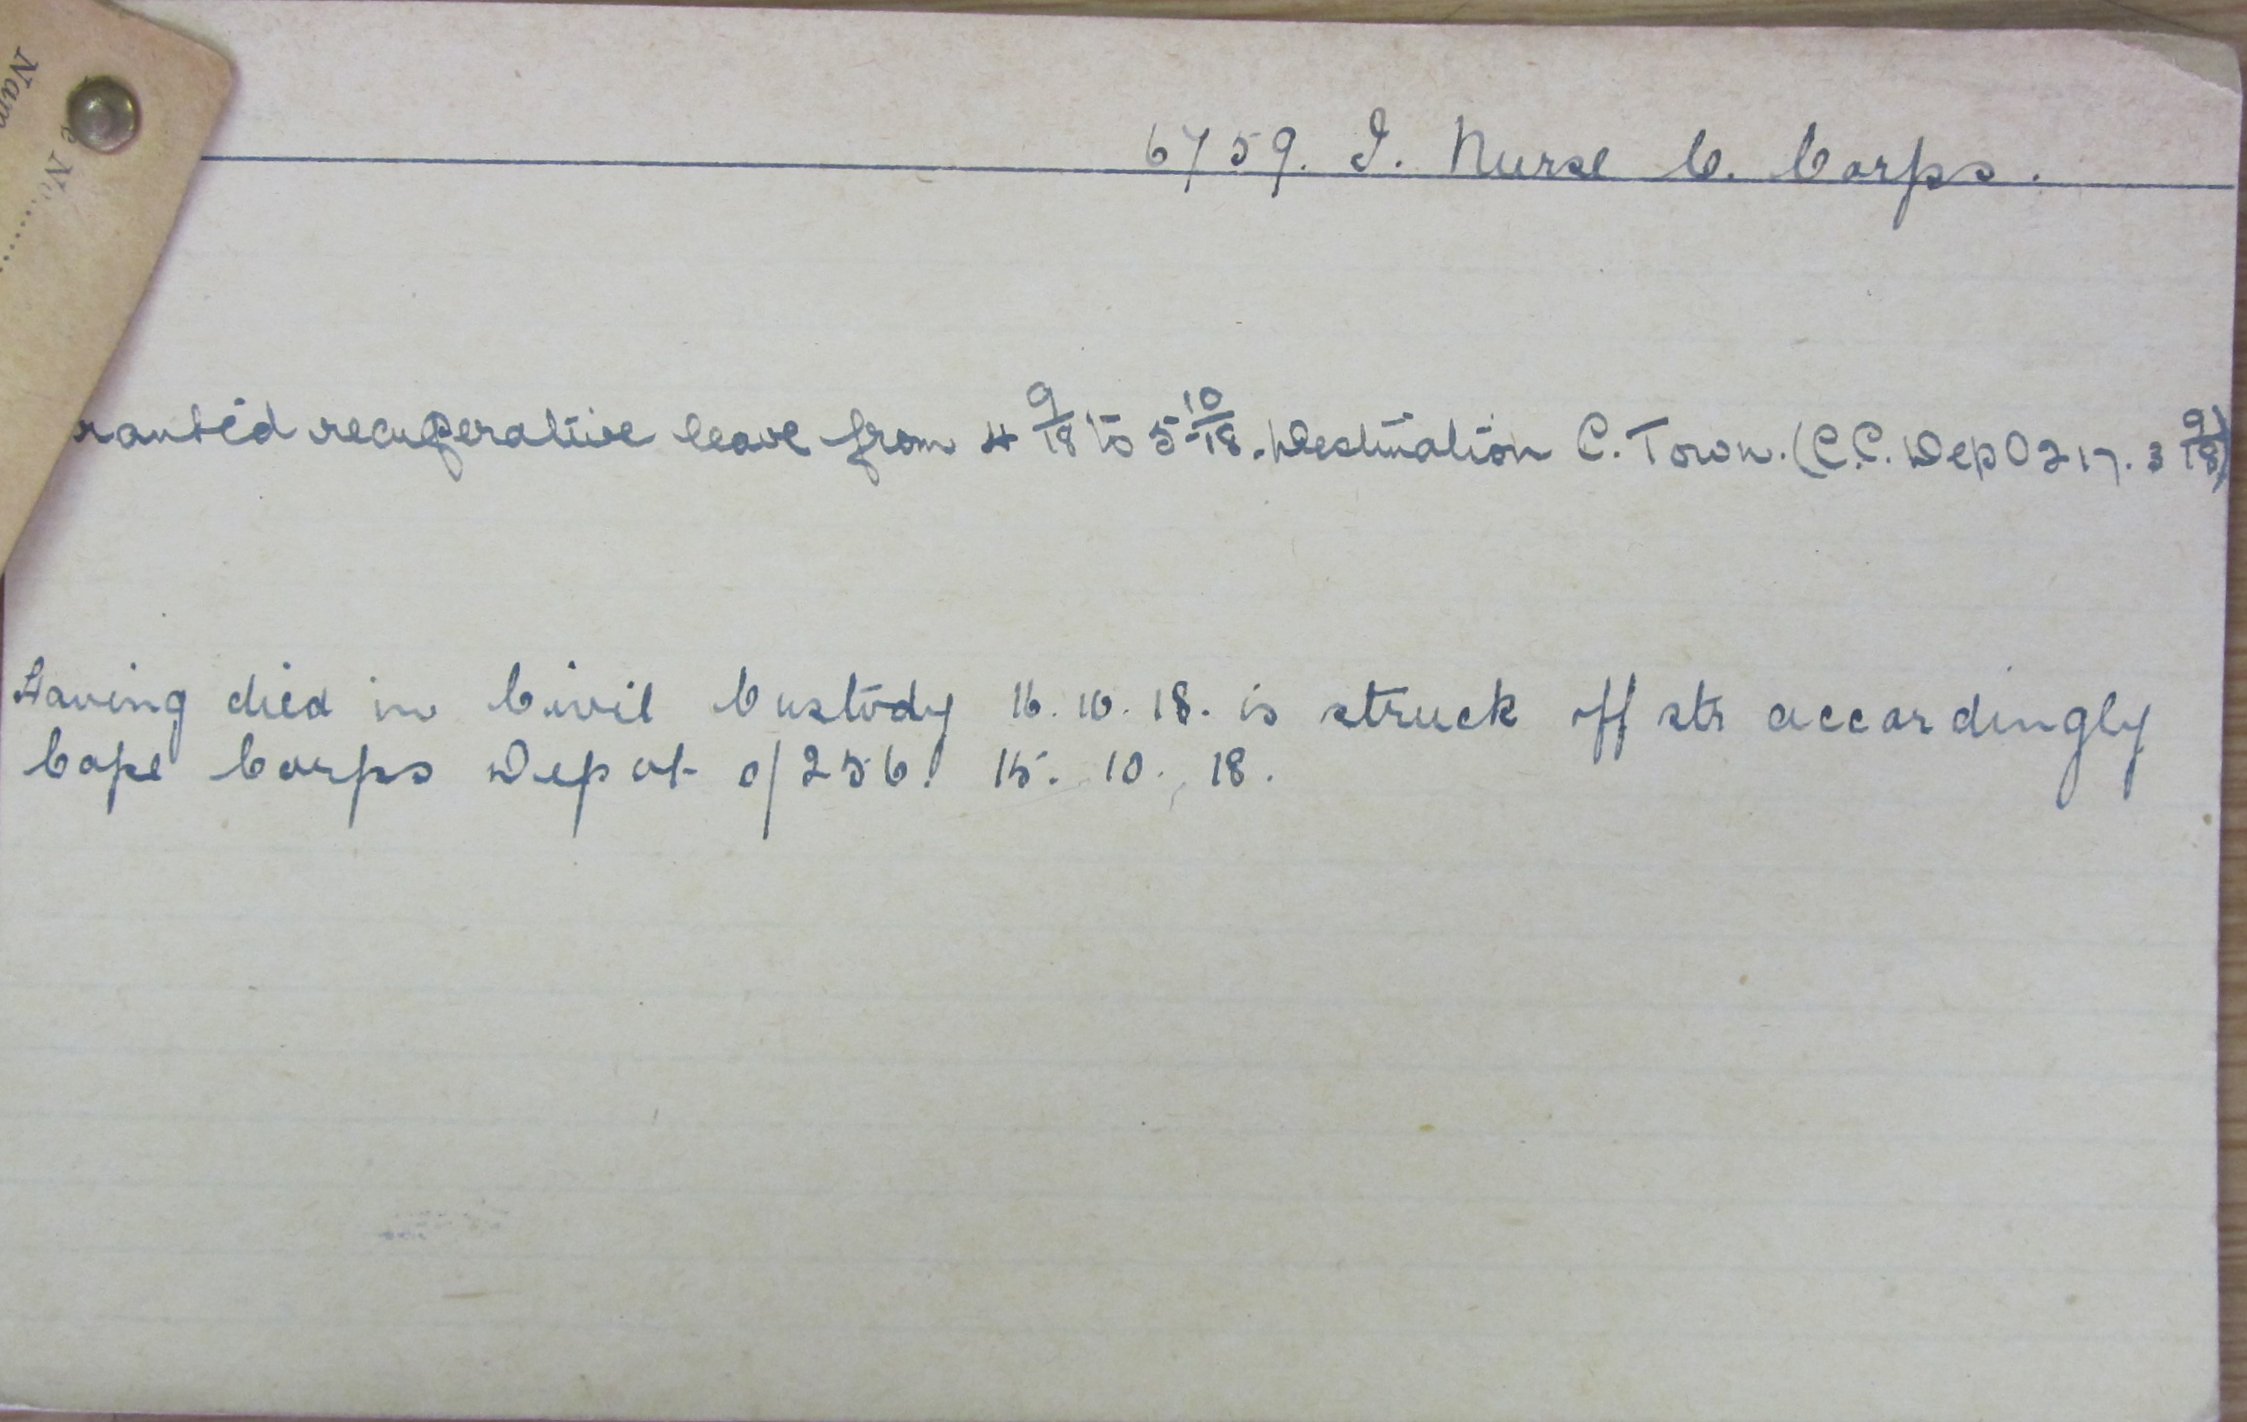 Nam
e No.......
6759. J. Nurse C. Corps.
ranted recuperative leave from 4 9/18 to 5 10/18. Destination C. Town. (C.C. Dep O 217. 3 9/18)
Having died in Civil Custody 16.10.18. is struck off str accordingly
Cape Corps Depot o/256. 15. 10. 18.